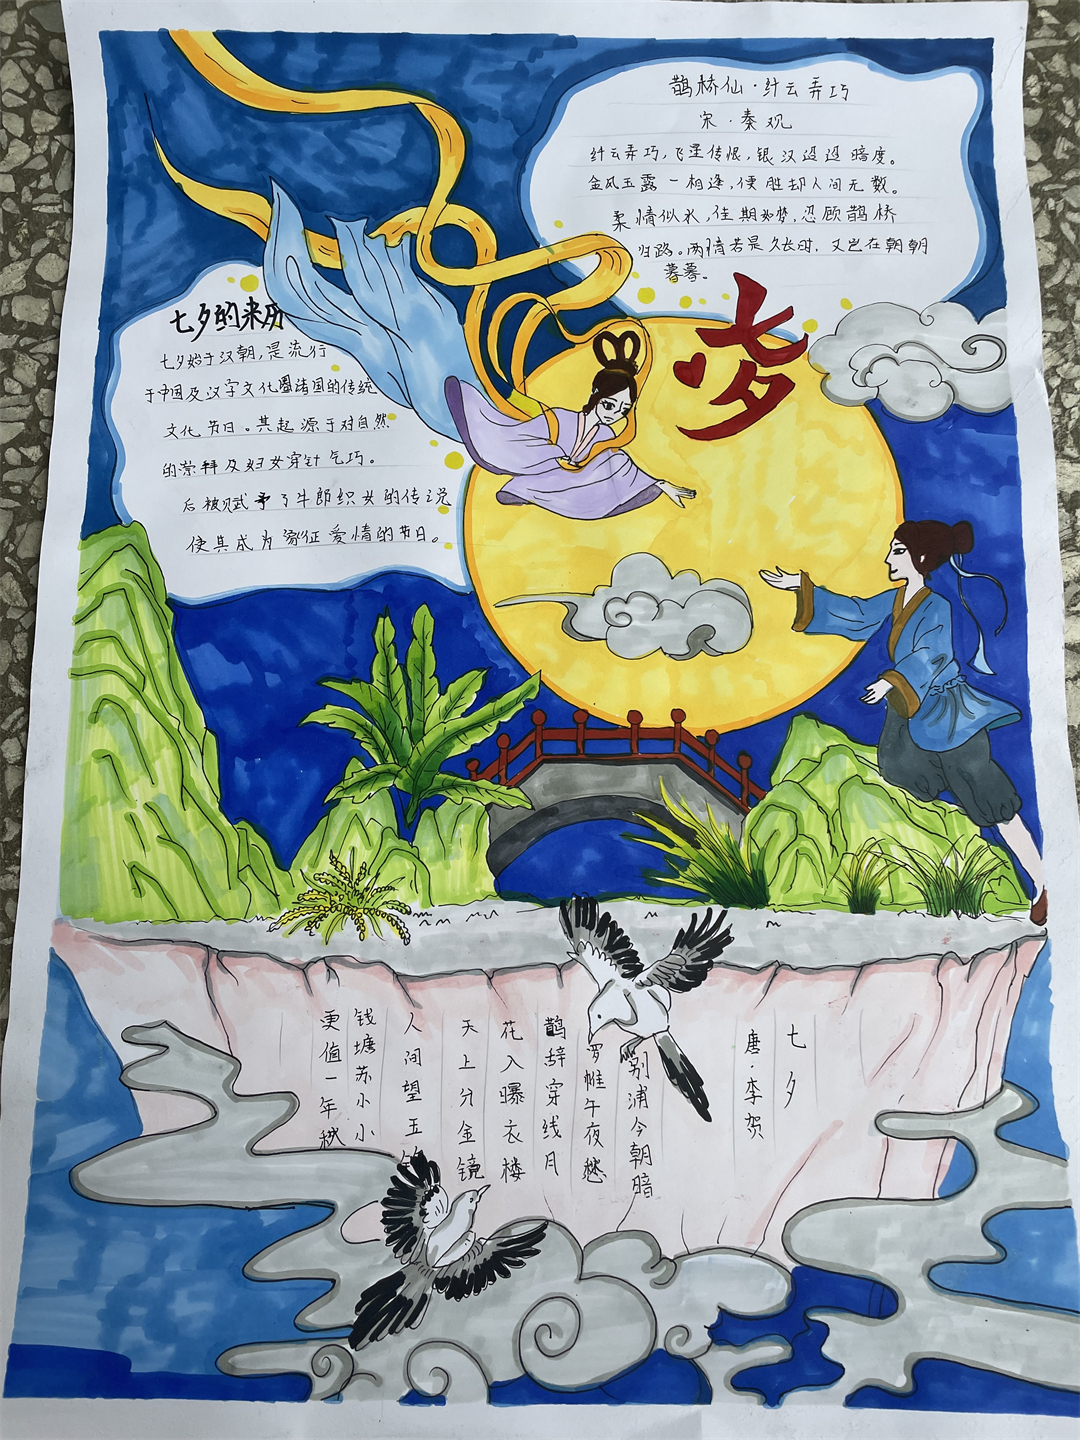 鹊桥仙·纤云弄巧
宋·秦观
纤云弄巧,飞星传恨,银汉迢迢暗度。
金风玉露一相逢,便胜却人间无数。
柔情似水,佳期如梦,忍顾鹊桥
归路。两情若是久长时,又岂在朝朝
暮暮。
七夕
七夕的来历
七夕始于汉朝,是流行
于中国及汉字文化圈诸国的传统
文化节日。其起源于对自然
的崇拜及妇女穿针乞巧。
后被赋予了牛郎织女的传说
使其成为象征爱情的节日。
七夕
唐·李贺
别浦今朝暗
罗帷午夜愁
鹊辞穿线月
花入曝衣楼
天上分金镜
人间望玉
钱塘苏小小
更值一年秋